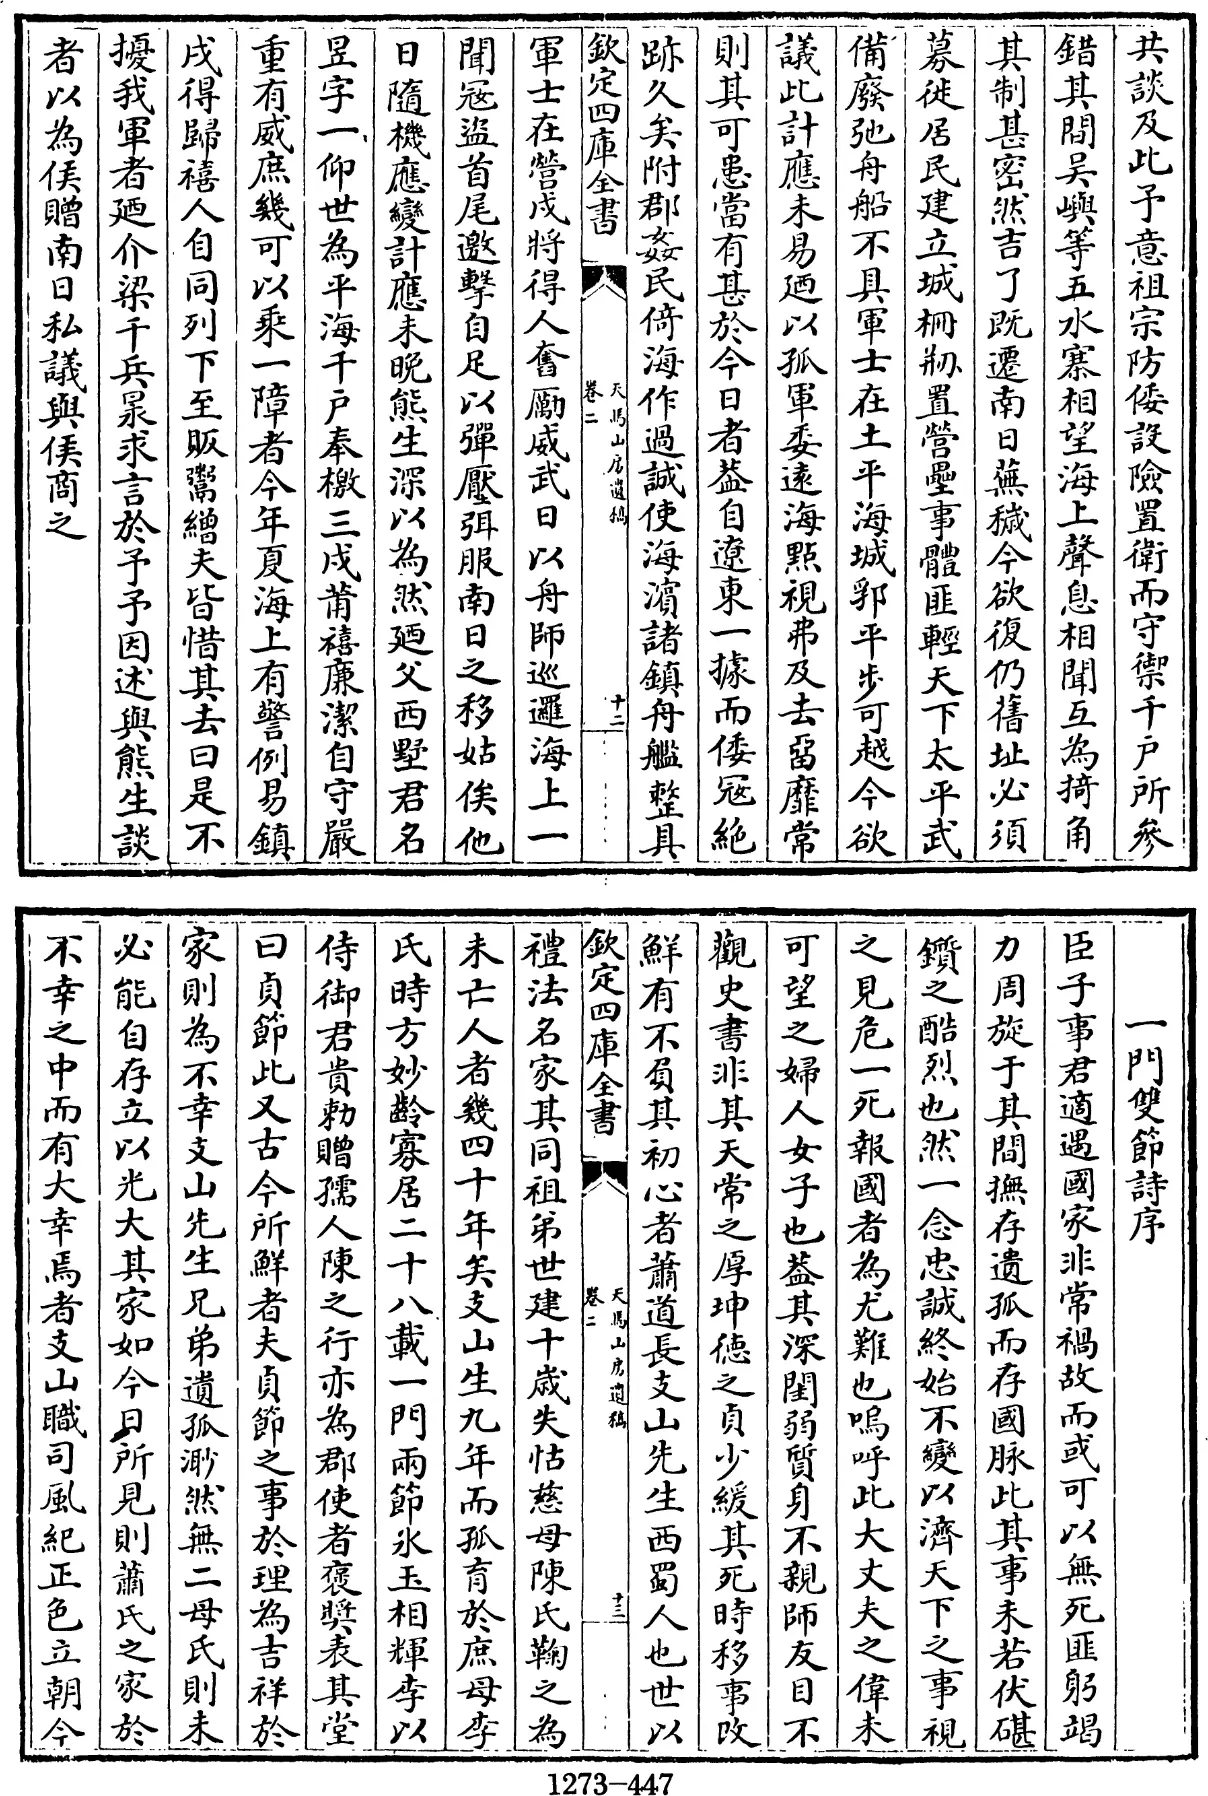 共談及此予意祖宗防倭設險置衛而守禦千戸所參
錯其間吴嶼等五水寨相望海上聲息相聞互為掎角
其制甚密然吉了既遷南日蕪穢今欲復仍舊址必須
募徙居民建立城柵剏置營壘事體匪輕天下太平武
備廢弛舟船不具軍士在土平海城郛平步可越今欲
議此計應未易廼以孤軍委遠海㸃視弗及去畱靡常
則其可患當有甚於今日者葢自遼東一據而倭冦絶
跡久矣附郡姦民倚海作過誠使海濵諸鎮舟艦整具
欽定四庫全書
天馬山房遺稿
卷二
十二
軍士在營戍將得人奮厲威武日以舟師巡邏海上一
聞冦盜首尾邀擊自足以彈壓弭服南日之移姑俟他
日隨機應變計應未晚熊生深以為然廼父西墅君名
昱字一仰世為平海千戸奉檄三戍莆禧㢘潔自守嚴
重有威庶幾可以乘一障者今年夏海上有警例易鎮
戍得歸禧人自同列下至販鬻繒夫皆惜其去曰是不
擾我軍者廼介梁千兵杲求言於予予因述與熊生談
者以為侯贈南日私議與侯商之
一門雙節詩序
臣子事君適遇國家非常禍故而或可以無死匪躬竭
力周旋于其間撫存遺孤而存國脉此其事未若伏碪
鑕之酷烈也然一念忠誠終始不變以濟天下之事視
之見危一死報國者為尤難也嗚呼此大丈夫之偉未
可望之婦人女子也葢其深閨弱質身不親師友目不
觀史書非其天常之厚坤德之貞少緩其死時移事改
鮮有不負其初心者蕭道長支山先生西蜀人也世以
欽定四庫全書
天馬山房遺稿
卷二
十三
禮法名家其同祖弟世建十歲失怙慈母陳氏鞠之為
未亡人者幾四十年矣支山生九年而孤育於庶母李
氏時方妙齡寡居二十八載一門兩節氷玉相輝李以
侍御君貴勅贈孺人陳之行亦為郡使者褒奬表其堂
曰貞節此又古今所鮮者夫貞節之事於理為吉祥於
家則為不幸支山先生兄弟遺孤渺然無二母氏則未
必能自存立以光大其家如今日所見則蕭氏之家於
不幸之中而有大幸焉者支山職司風紀正色立朝今
1273-447